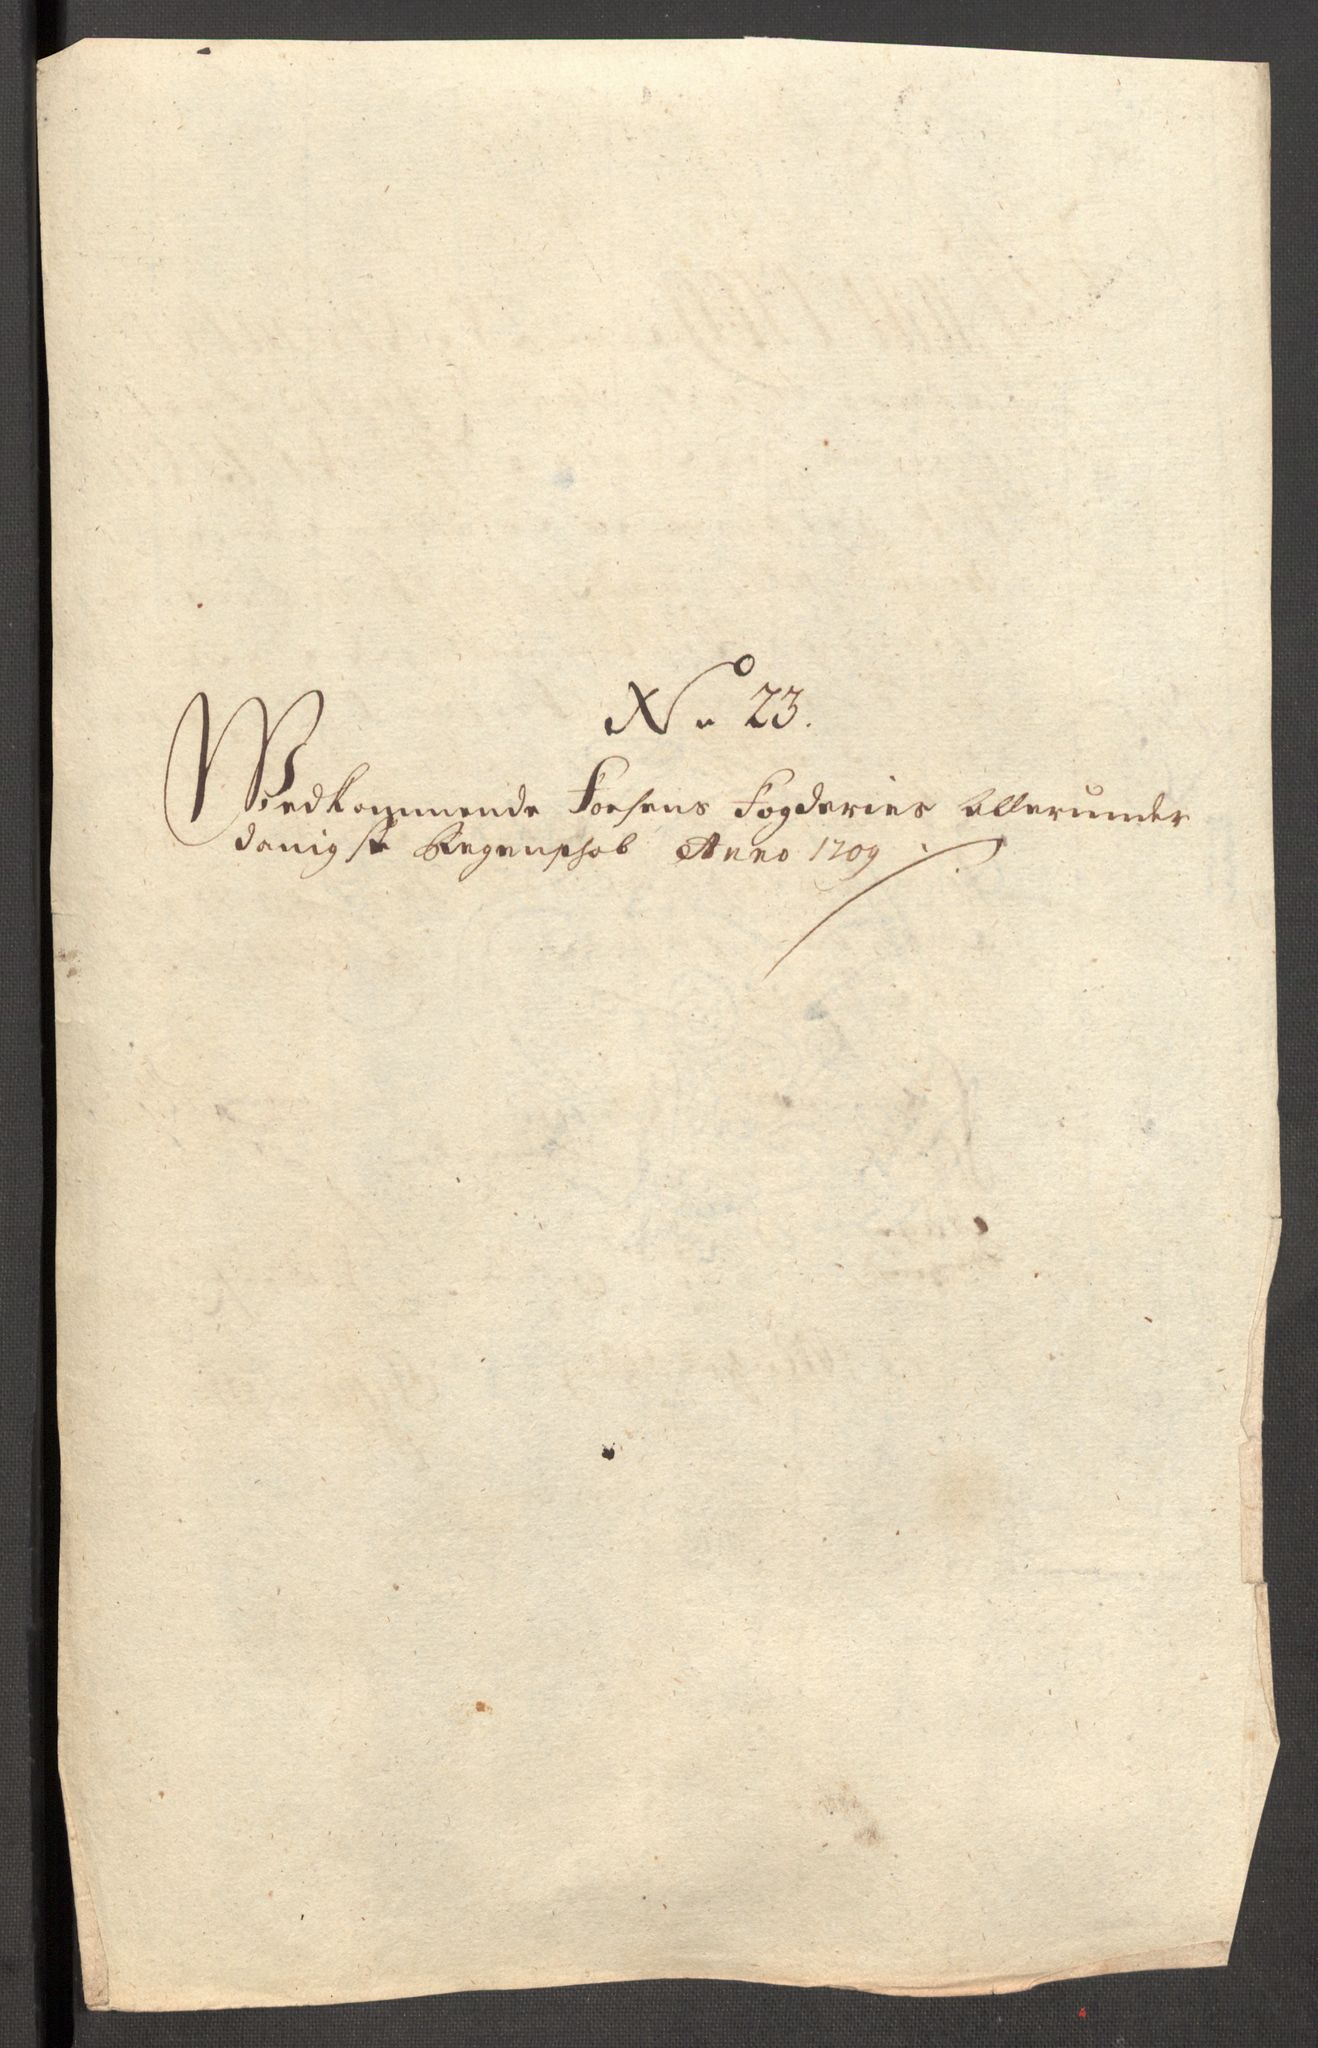 No 23.
Vedkommende Fosens Fogderies allerunder
danigste Regenskab Anno 1709